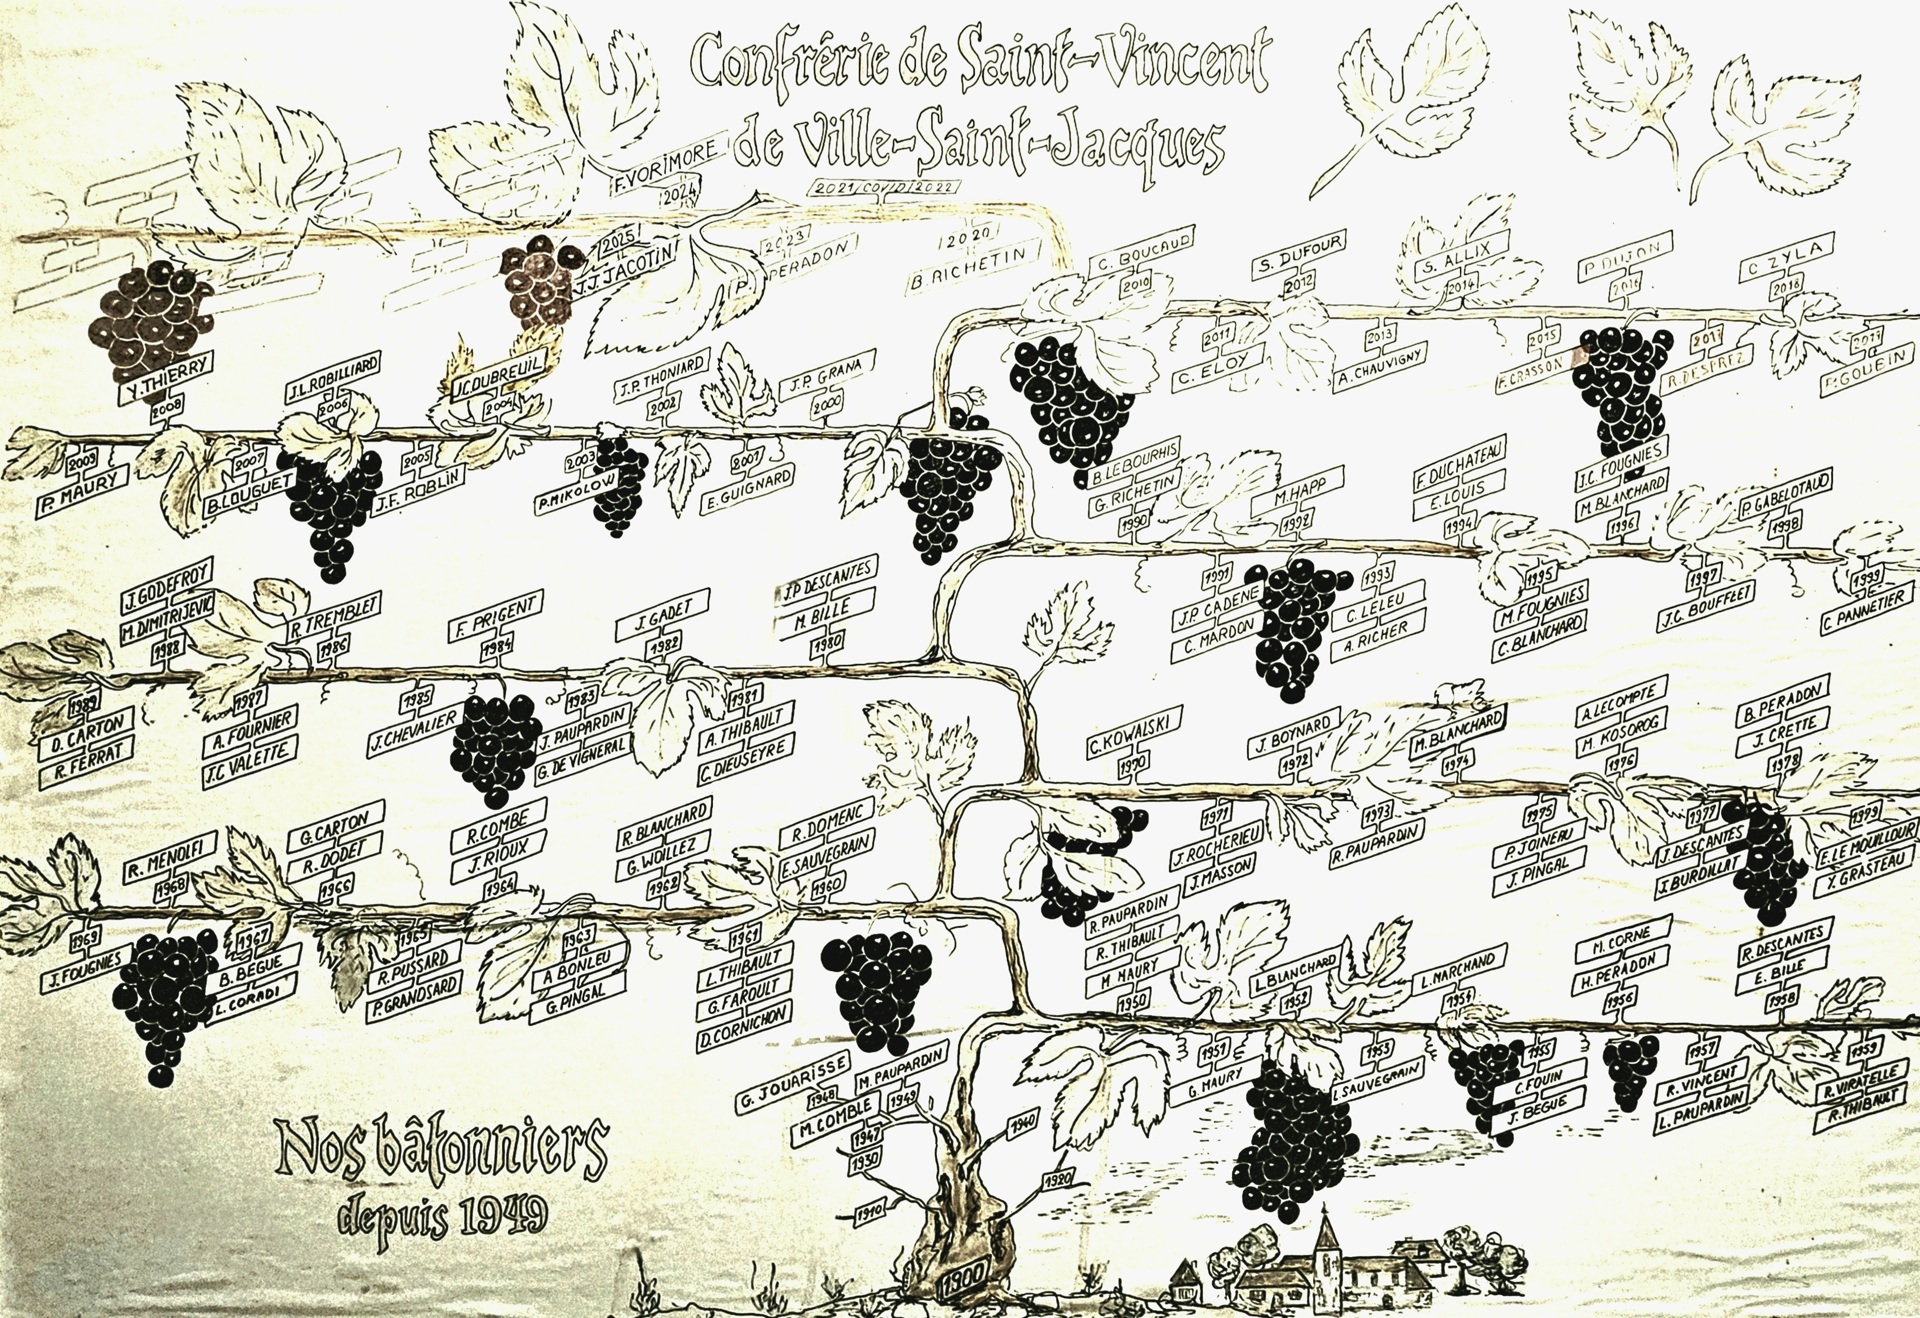 Confrérie de Saint-Vincent
de Ville-Saint-Jacques
F. VORIMORE
2024
2021/COVID/2022
2025
J.J. JACOTIN
2023
P. PERADON
2020
B. RICHETIN
C. BOUCAUD
2010
S. DUFOUR
2012
S. ALLIX
2014
P. DUJON
2016
C. ZYLA
2018
2011
C. ELOY
2013
A. CHAUVIGNY
2015
F. CRASSON
2017
R. DESPREZ
2019
P. GOUEIN
Y. THIERRY
2008
J.L. ROBILLIARD
2006
J.C. DUBREUIL
2004
J.P. THONIARD
2002
J.P. GRANA
2000
2009
P. MAURY
2007
B. LOUGUET
2005
J.F. ROBLIN
2003
P. MIKOLOW
2001
E. GUIGNARD
B. LEBOURHIS
G. RICHETIN
1990
M. HAPP
1992
F. DUCHATEAU
E. LOUIS
1994
J.C. FOUGNIES
M. BLANCHARD
1996
P. GABELOTAUD
1998
1991
J.P. CADENE
C. MARDON
1993
C. LELEU
A. RICHER
1995
M. FOUGNIES
C. BLANCHARD
1997
J.C. BOUFFLET
1999
C. PANNETIER
J. GODEFROY
M. DIMITRIJEVIC
1988
R. TREMBLET
1986
F. PRIGENT
1984
J. GADET
1982
J.P. DESCANTES
M. BILLE
1980
1989
D. CARTON
R. FERRAT
1987
A. FOURNIER
J.C. VALETTE
1985
J. CHEVALIER
1983
J. PAUPARDIN
G. DE VIGNERAL
1981
A. THIBAULT
C. DIEUSEYRE
C. KOWALSKI
1970
J. BOYNARD
1972
M. BLANCHARD
1974
A. LECOMPTE
M. KOSOROG
1976
B. PERADON
J. CRETTE
1978
1971
J. ROCHERIEU
J. MASSON
1973
R. PAUPARDIN
1975
P. JOINEAU
J. PINGAL
1977
J. DESCANTES
J. BURDILLAT
1979
F. LE MOUILLOUR
Y. GRASTEAU
R. MENOLFI
1968
G. CARTON
R. DODET
1966
R. COMBE
J. RIOUX
1964
R. BLANCHARD
G. WOILLEZ
1962
R. DOMENC
E. SAUVEGRAIN
1960
1969
J. FOUGNIES
1967
B. BEGUE
L. CORADI
1965
R. PUSSARD
P. GRANDSARD
1963
A. BONLEU
G. PINGAL
1961
L. THIBAULT
G. FAROULT
D. CORNICHON
R. PAUPARDIN
R. THIBAULT
M. MAURY
1950
L. BLANCHARD
1952
L. MARCHAND
1954
M. CORNE
H. PERADON
1956
R. DESCANTES
E. BILLE
1958
1951
G. MAURY
1953
L. SAUVEGRAIN
1955
C. FOUIN
J. BEGUE
1957
R. VINCENT
L. PAUPARDIN
1959
R. VIRATELLE
R. THIBAULT
G. JOUARISSE
1948
M. PAUPARDIN
1949
M. COMBLE
1947
1940
1930
1920
1910
1900
Nos bâtonniers
depuis 1949